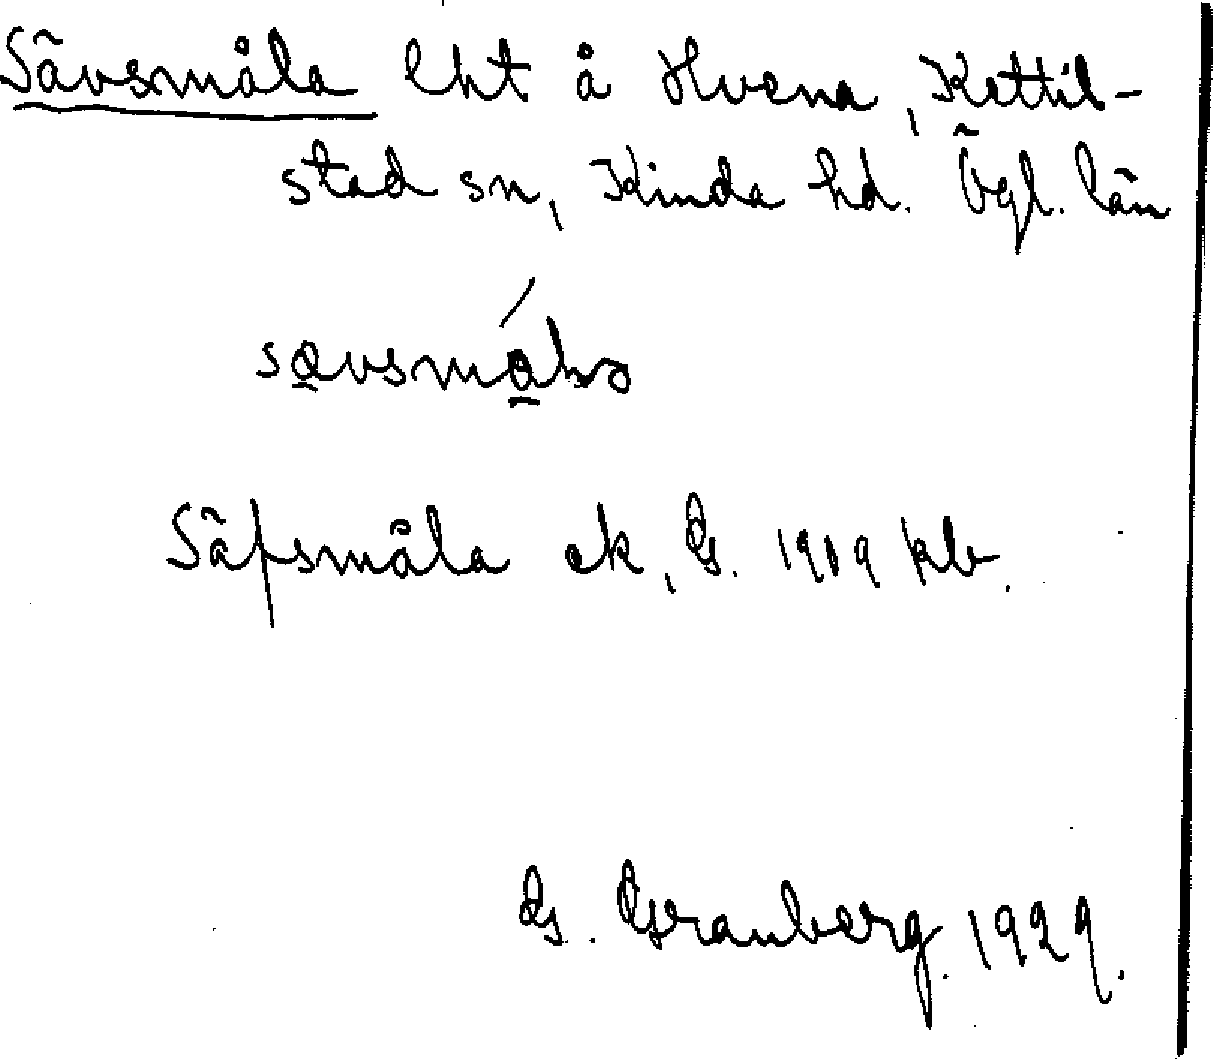 Sävsmåla lht å Hvena, Kettil-
stad sn, Kinda hd. Ögl. län
Säfsmåla ek, G. 1919 kb.
G. Granberg. 1929.